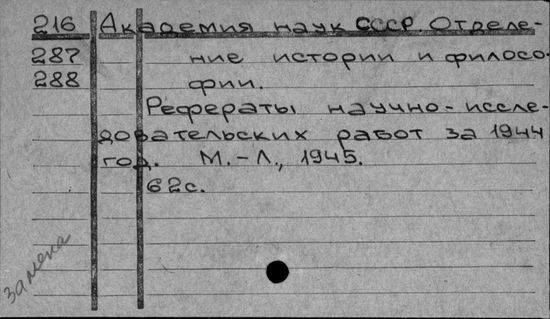 216 Академия наук СССР Отделе-
287 ние истории и филосо-
288 фии.
Рефераты научно-иссле-
довательских работ за 1944
год. М.-Л., 1945.
62с.
замена